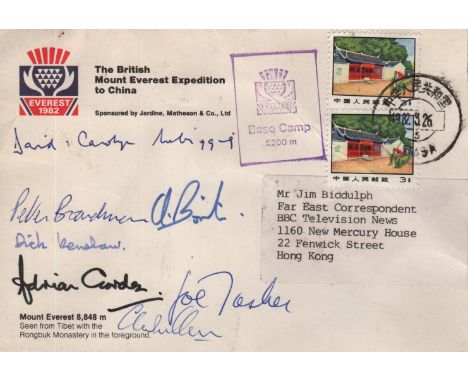 EVEREST
1982
The British
Mount Everest Expedition
to China
Sponsored by Jardine, Matheson & Co., Ltd
EVEREST
Base Camp
5200 m
中国人民邮政
中国人民邮政
人民共和国
Mr Jim Biddulph
Far East Correspondent
BBC Television News
1160 New Mercury House
22 Fenwick Street
Hong Kong
David + Carolyn
Peter Boardman
Dick Renshaw.
Adrian Gordon
Joe Tasker
Mount Everest 8,848 m
Seen from Tibet with the
Rongbuk Monastery in the foreground.